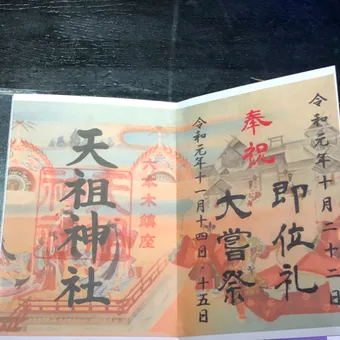 令和元年十月二十二日
即位礼
奉祝
大嘗祭
令和元年十一月十四日・十五日
六本木鎮座
天祖神社